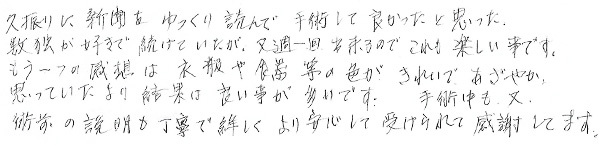 久振りに新聞をゆっくり読んで手術して良かったと思った.
数独が好きで続けていたが、又週一回出来るのでこれも楽しい事です。
もう一つの感想は衣服や食器等の色がきれいであざやか、
思っていたより結果は良い事が多いです.　手術中も、又、
術前の説明も丁寧で詳しくより安心して受けられて感謝してます。